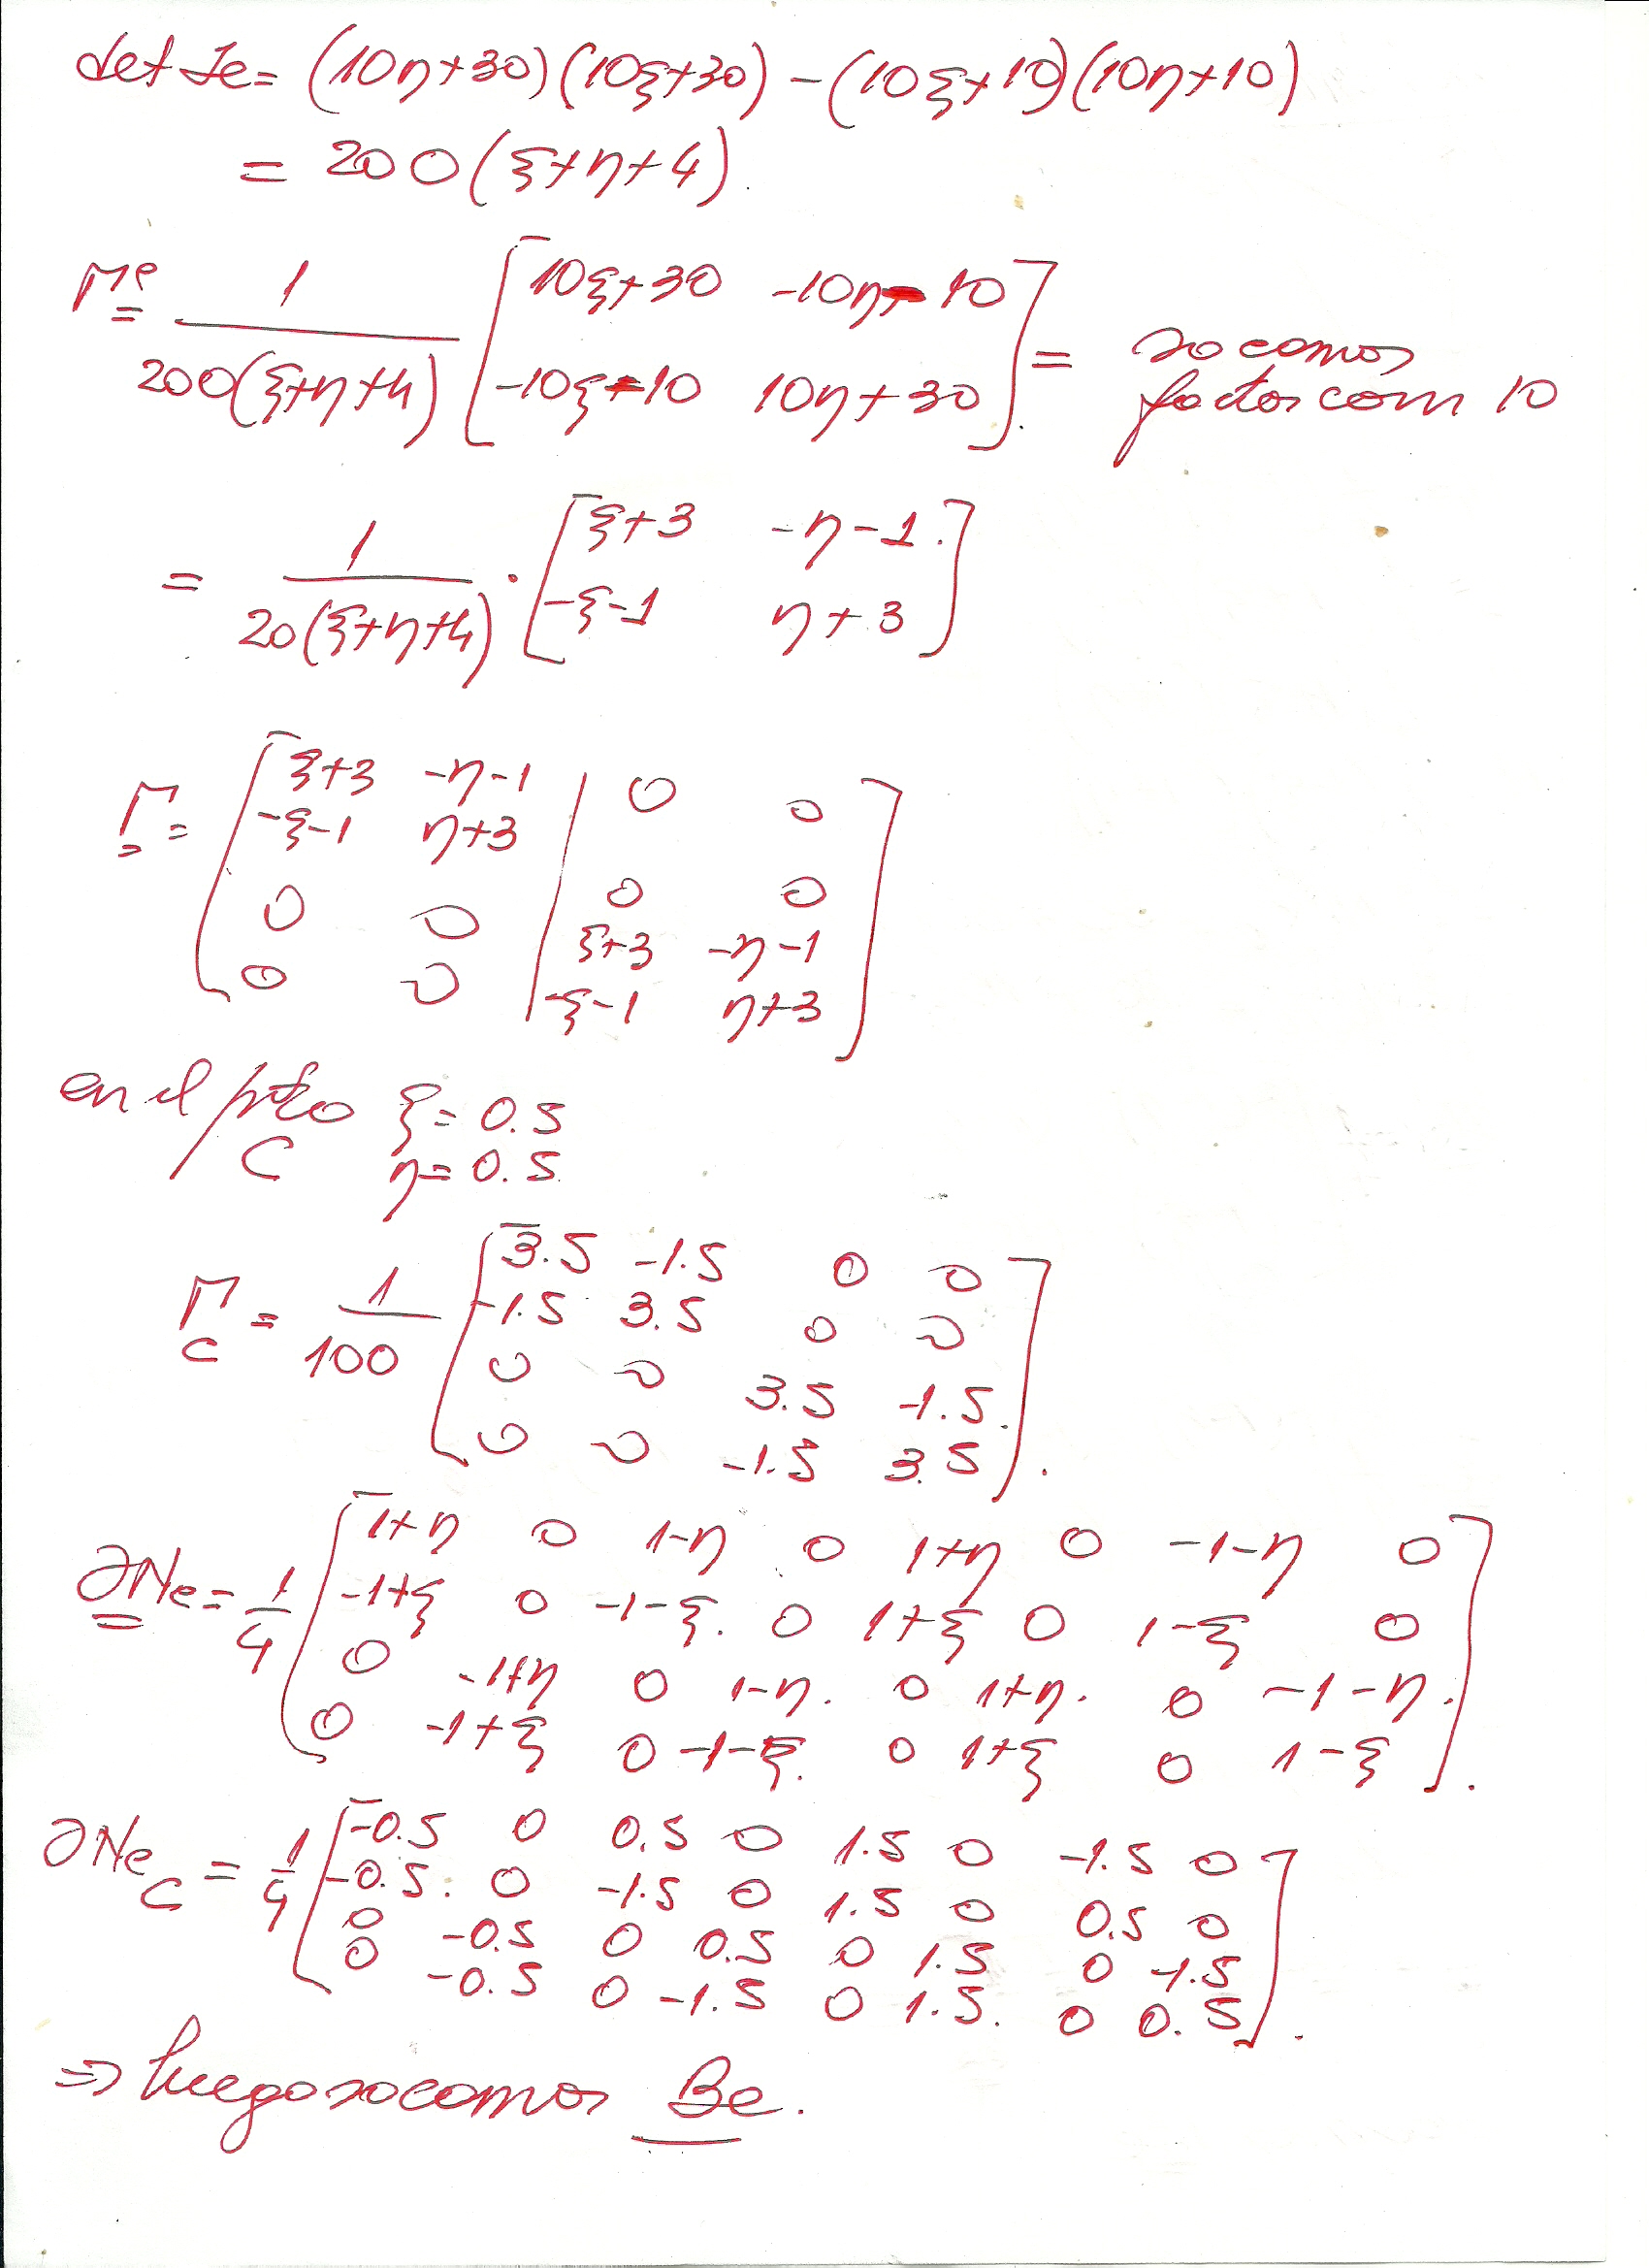 det Je = (10η+30)(10ξ+30) - (10ξ+10)(10η+10)
= 200(ξ+η+4).
Γe = 1/200(ξ+η+4) [10ξ+30 -10η-10
-10ξ-10 10η+30] = sacamos factor com 10
= 1/20(ξ+η+4) · [ξ+3 -η-1
-ξ-1 η+3]
Γ = [ξ+3 -η-1 | 0 0
-ξ-1 η+3 |
0 0 | 0 0
0 0 | ξ+3 -η-1
-ξ-1 η+3]
en el pto C ξ = 0.5
η = 0.5
Γc = 1/100 [3.5 -1.5 0 0
-1.5 3.5 0 0
0 0 3.5 -1.5
0 0 -1.5 3.5].
∂Ne = 1/4 [1+η 0 1-η 0 1+η 0 -1-η 0
-1+ξ 0 -1-ξ. 0 1+ξ 0 1-ξ 0
0 -1+η 0 1-η. 0 1+η. 0 -1-η.
0 -1+ξ 0 -1-ξ. 0 1+ξ 0 1-ξ].
∂Ne C = 1/4 [-0.5 0 0.5 0 1.5 0 -1.5 0
-0.5. 0 -1.5 0 1.5 0 0.5 0
0 -0.5 0 0.5 0 1.5 0 -1.5
0 -0.5 0 -1.5 0 1.5. 0 0.5].
⇒ luego sacamos Be.